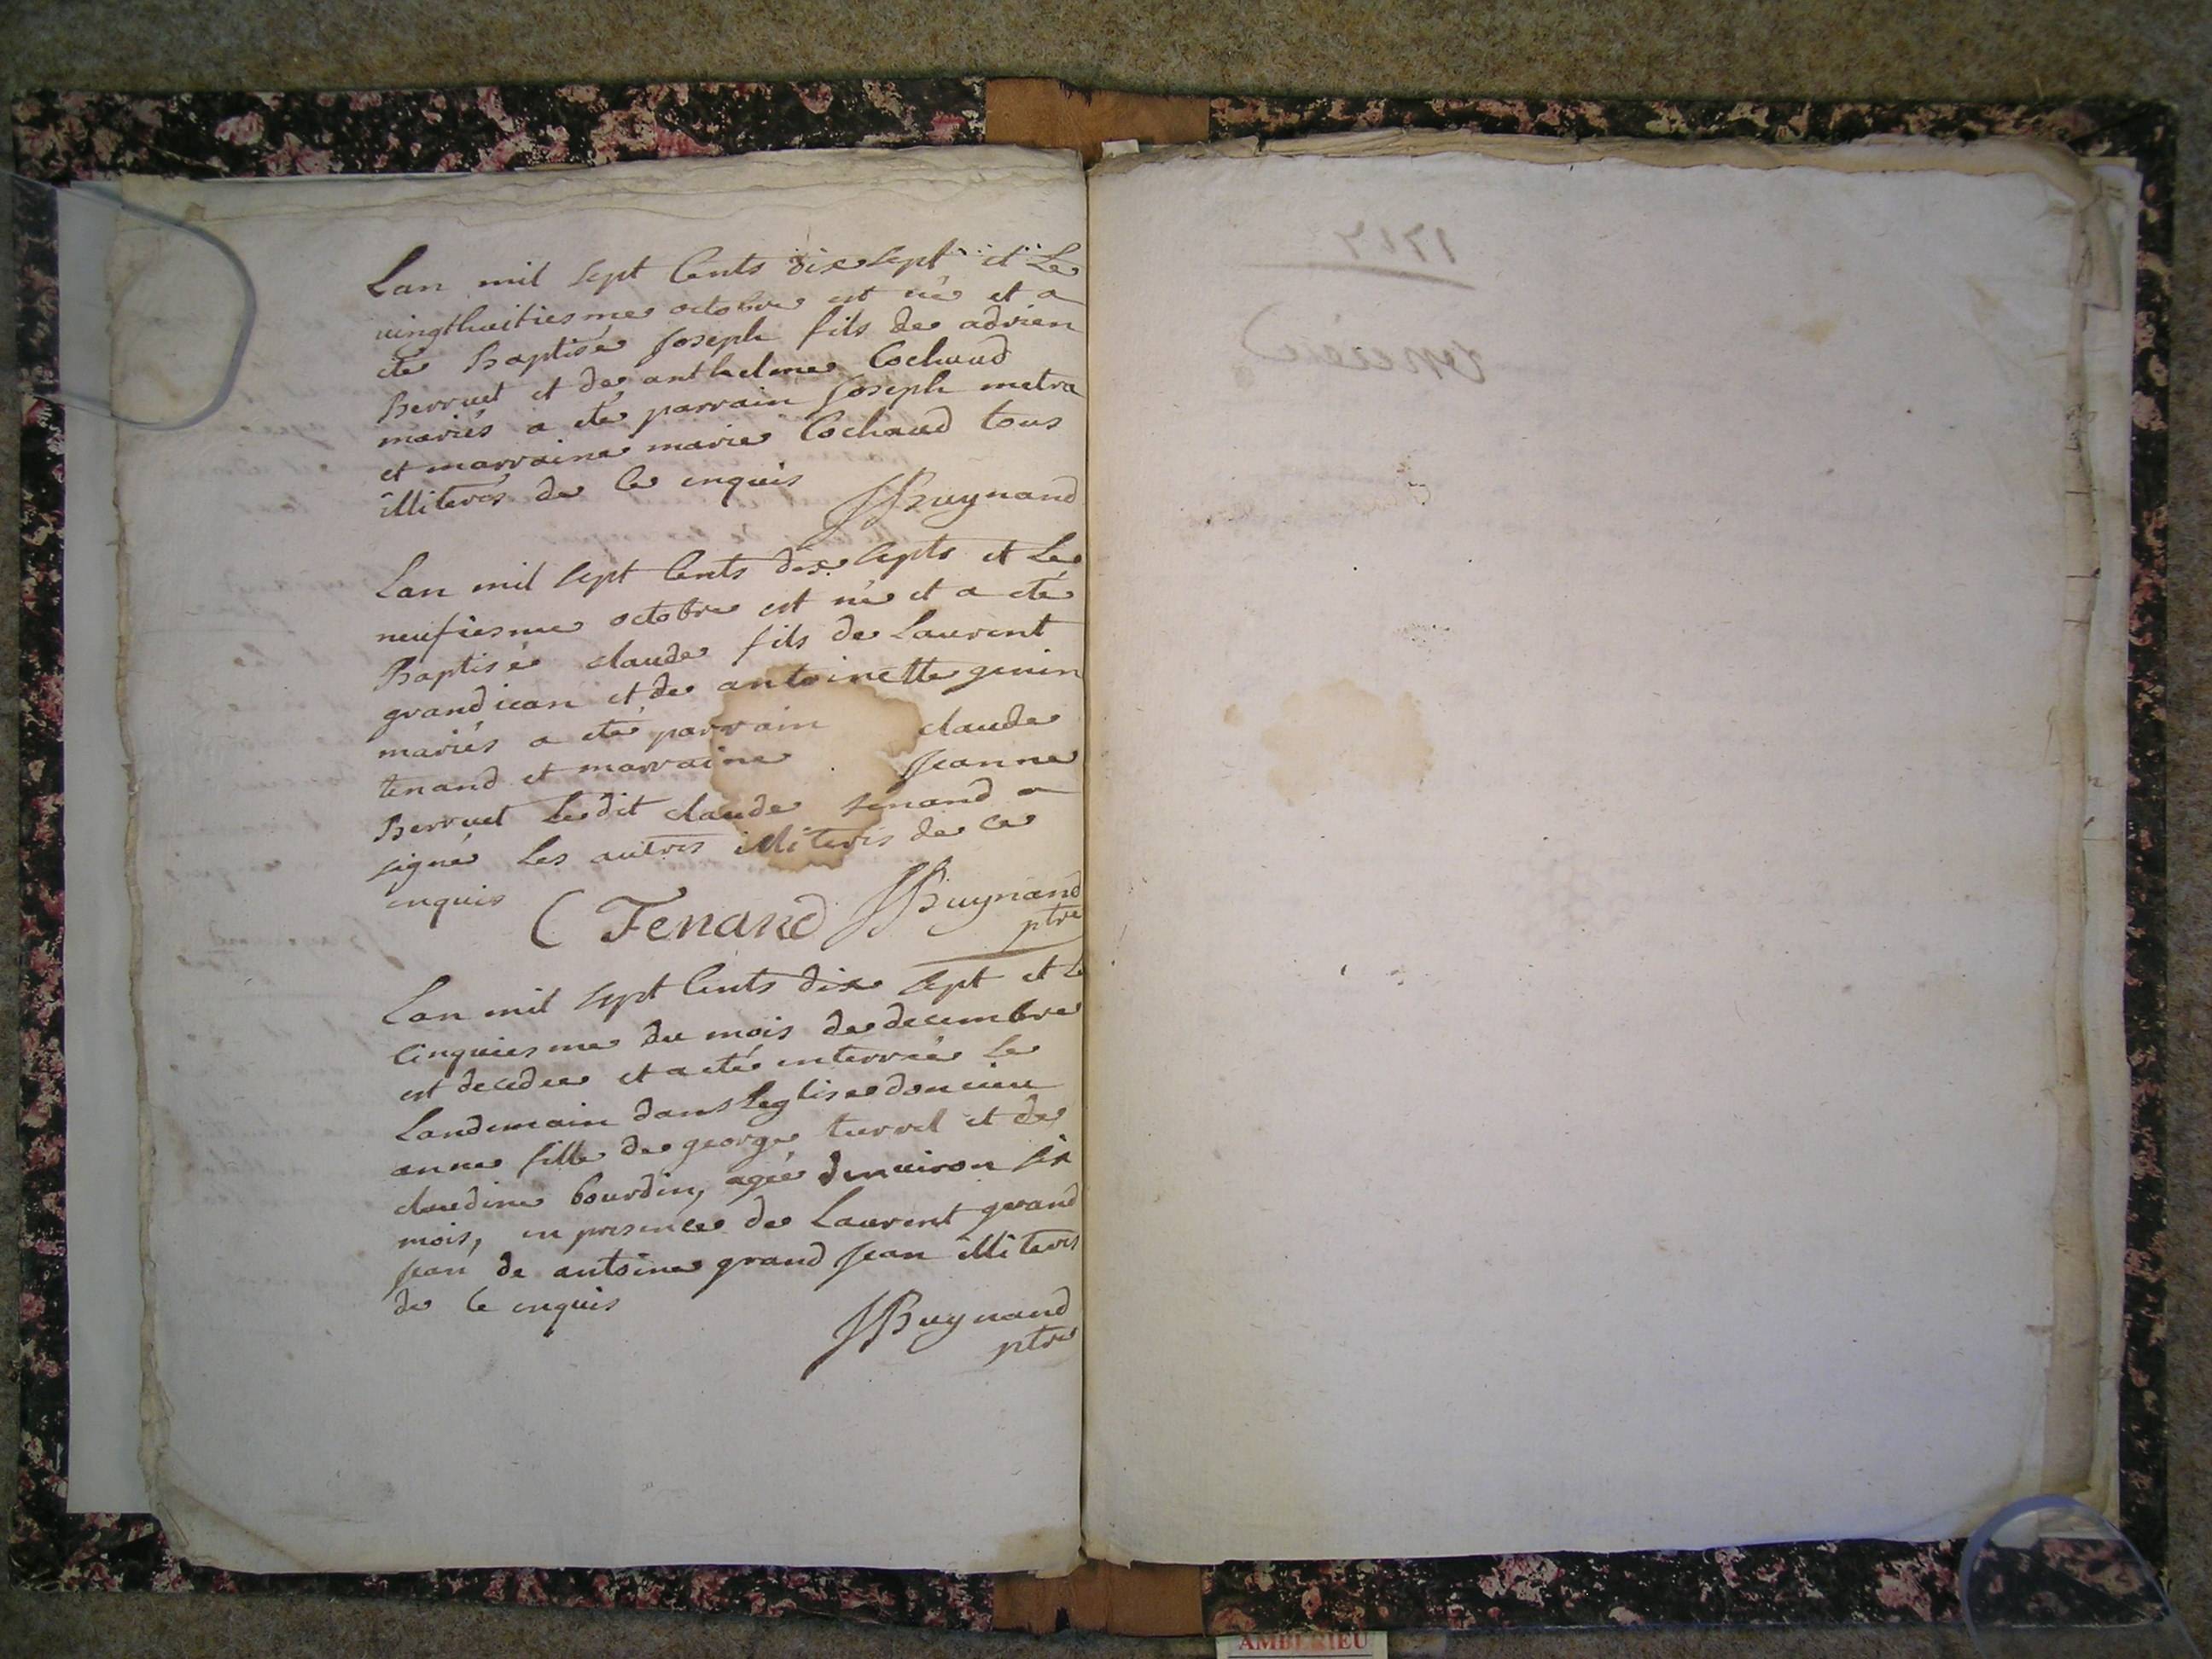 Lan mil sept Cents dix sept et Le
vingthuitiesme octobre est né et a
eté Baptisé Joseph fils de adrien
Berruet et de anthelme Cochaud
mariés a eté parrain Joseph metra
et marraine marie Cochaud tous
illiterés de Ce enquis
JBuynand
Lan mil sept Cents dix septs et Le
neufiesme octobre est né et a eté
Baptisé claude fils de Laurent
grandiean et de antoinette genin
mariés a eté parrain claude
tenand et marraine Jeanne
Berruet Le dit claude tenand a
signé Les autres illiterés de ce
enquis
C Tenand JBuynand
ptre
Lan mil sept Cents dix sept et Le
Cinquiesme du mois de decembre
est decedee et a eté enterrée Le
Landemain dans Leglise doncieu
anne fille de george turrel et de
claudine bourdin, agée denuiron six
mois, en presence de Laurent grand
Jean de antoine grand Jean illiterés
de Ce enquis
JBuynand
ptre
1717
AMBERIEU